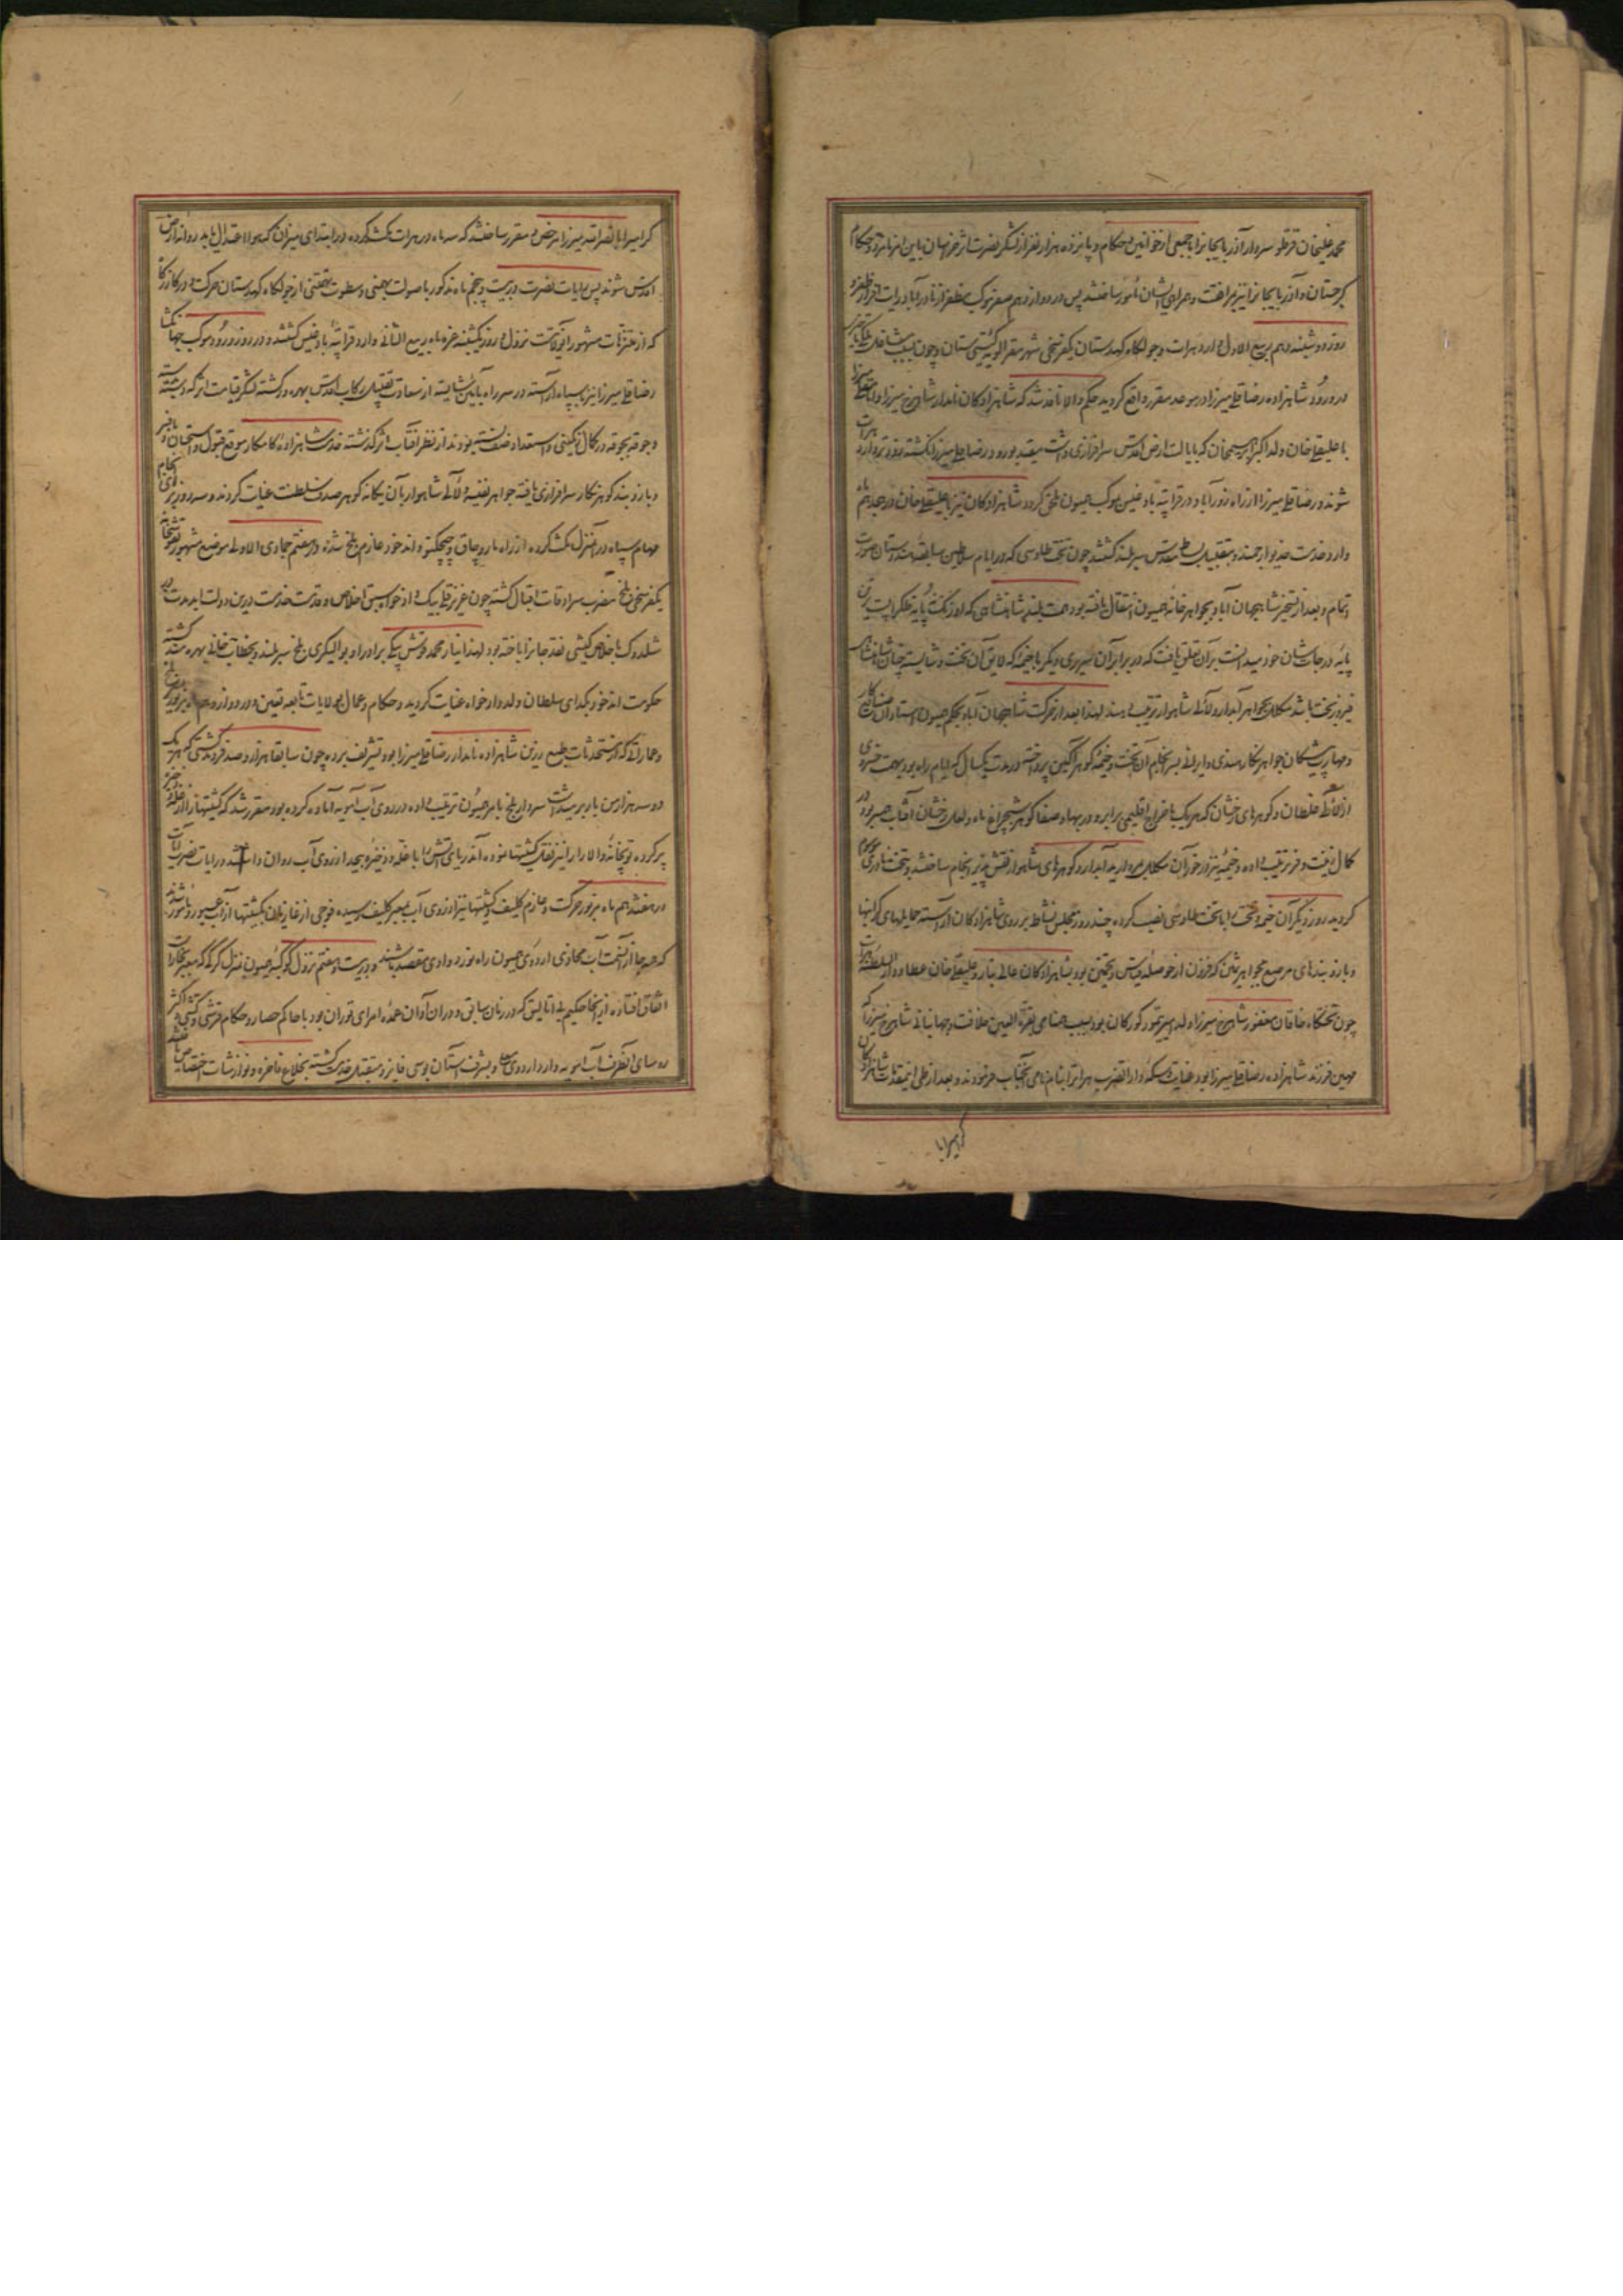 محمد علیخان قرقلو سردار آذربایجانرا با جمعی از خوانین و حکام و پانزده هزار نفر از لشکر نصرت اثر خراسان باین امر نامزد و حکام
کرجستان و آذربایجانرا نیز بمرافقت و همراهی ایشان مامور ساختند پس در دوازدهم صفر موکب مظفر از نادرآباد رایت افراز ظفر و
روز دوشنبه دهم ربیع الاول وارد هرات و جولکاه کهدستان یکفرسخی شهر مقر الویه کیتی ستان و چون بسبب
در ورود شاهزاده رضا قلی میرزا در موعد مقرر واقع کردید حکم والا نافذ شد که شاهزادکان نامدار شاهرخ میرزا و امامقلی میرزا
با علیقلی خان ولد اکبر ابراهیمخان که بایالت ارض اقدس سرافرازی داشت مقید بورود رضا قلی میرزا نکشته زودتر وارد هرات
شوند و رضا قلی میرزا از راه زورآباد در قراتپه بادغیس بموکب همیون ملحق کردد شاهزادکان نیز با علیقلی خان در هجدهم ماه
وارد خدمت خدیو ارجمند و بتقبیل بساط مقدس سربلند کشتند چون تخت طاوسی که در ایام سلاطین سابقه هندوستان صورت
اتمام و بعد از تسخیر شاهجهان آباد بجواهر خانه همیون انتقال یافته بود همت بلند شاهنشاهی که اورنک نه پایه فلک را پست ترین
پایه درجات شان خود میدانست بر آن تعلق یافت که در برابر آن سریری دیکر با خیمه که لایق آن تخت و شایسته چنان شاهنشاه
فیروزبخت باشد مکلل بجواهر آبدار و لآلی شاهوار ترتیب دهند لهذا بعد از حرکت شاهجهان آباد بحکم همیون استادان صنایع کار
و مهارت پیشکان جواهر نکار هندی و ایرانی بسرانجام آن تخت و خیمه کوهرآکین پرداخته در مدت یکسال که ایام راه بود بهمت خسروی
از لآلی غلطان و کوهرهای رخشان که هریک با خراج اقلیمی برابر و در بها و صفا کوهر شبچراغ ماه و لعل رخشان آفتاب همسر بود در
کمال زینت و فر ترتیب داده و خیمه نیز در خور آن مکلل بمروارید آبدار و کوهرهای شاهوار نقش پذیر انجام ساختند و بتخت نادری موسوم
کردید روز دیکر آن خیمه و تخت را با تخت طاوسی نصب کرده چند روز مجلس نشاط بر روی شاهزادکان آراسته حمایلهای کرانبها
و بازوبندهای مرصع بجواهر ثمین که فزون از حوصله قیاس و تخمین بود بشاهزادکان عالی تبار و علیقلی خان عطا و دار السلطنه هرات
چون تختکاه خاقان مغفور شاهرخ میرزا ولد امیر تیمور کورکان بود بسبب همنامی بقرة العین خلافت و جهانبانی شاهرخ میرزا که
مهین فرزند شاهزاده رضا قلی میرزا بود عنایت و سکه دار الضرب هراترا بنام نامی آنجناب فرمودند و بعد از طی اینمقدمات شاهزادکان
کرامیرا با
کرامیرا با نصرالله میرزا مرخص و مقرر ساختند که سه ماه در هرات مکث کرده در ابتدای میزان که هوا باعتدال آید روانه ارض
اقدس شوند پس رایات نصرت در بیست و پنجم ماه مذکور با صولت بهمنی و سطوت تهمتنی از جولکاه کهدستان حرکت و در کازرکاه
که از متنزهات مشهور آنولایتست نزول و روز یکشنبه غره ماه ربیع الثانی وارد قراتپه بادغیس کشتند و در روز ورود موکب جهانکشا
رضا قلی میرزا نیز با سپاه آراسته در سر راه بآئین شایسته از سعادت تقبیل رکاب اقدس بهره ور کشته لشکر قیامت اثر که دسته دسته
و جوقه بجوقه در کمال رنکینی و استعداد صف بسته بودند از نظر آفتاب اثر کذشته خدمت شاهزاده کامکار موقع قبول و استحسان یافته
و بازوبند کوهرنکار سرافرازی یافته جواهر نفیسه و لآلی شاهوار بآن یکانه کوهر صدف سلطنت عنایت کردند و سه روز برای انجام
مهام سپاه در آنمنزل مکث کرده از راه ماروچاق و چیچکتو و اندخود عازم بلخ شده و در هفتم جمادی الاولی موضع مشهور
یکفرسخی بلخ مضرب سرادقات اقبال کشته چون عزیز قلی بیک دادخواه بسبق اخلاص و قدمت خدمت درین دولت ابدمدت
با خلاص کیشی نقد جانرا باخته بود لهذا نیاز محمد قوش بیکی برادر او بوالیکری بلخ سربلند و بخطاب خانی بهره مند کشته
حکومت اندخود بکدای سلطان ولد دادخواه عنایت کردید و حکام و عمال بولایات تابعه تعیین و در دوازدهم ماه مزبور
و عماراتی که از مستحدثات طبع رزین شاهزاده نامدار رضا قلی میرزا بود تشریف برده چون سابقا هزار و صد فروند کشتی که هر یک
دو سه هزار من بار برمیداشت سردار بلخ بامر همیون ترتیب داده در روی آب آمویه آماده کرده بود مقرر شد که کشتیها را از غله و ذخیره
پر کرده توپخانه والا را نیز نقل کشتیها نموده آندریای آتش را با غله و ذخیره بیحد از روی آب روان داشتند و رایات نصرت آیات
در هفدهم ماه مزبور حرکت و عازم کلیف و کشتیها نیز از روی آب بمعبر کلیف رسیده فوجی از غازیان بکشتیها از آب عبور و مامور شدند
که همه جا از آنسمت آب محاذی اردوی همیون راه نورد وادی مقصد باشند و در بیست و هفتم نزول کوکبه همیون بمنزل کرکی که معبر بخارا
اتفاق افتاد در آنجا حکیم بی اتالیق که در زمان سابق و در آن آوان عمده امرای توران بود با حاکم حصار و حکام قرشی و کشبی و اکثر
روسای آنطرف آب آمویه وارد اردوی معلی و بشرف آستان بوسی فایز و متقبل خدمت کشته بخلاع فاخره و نوازشات اختصاص یافتند